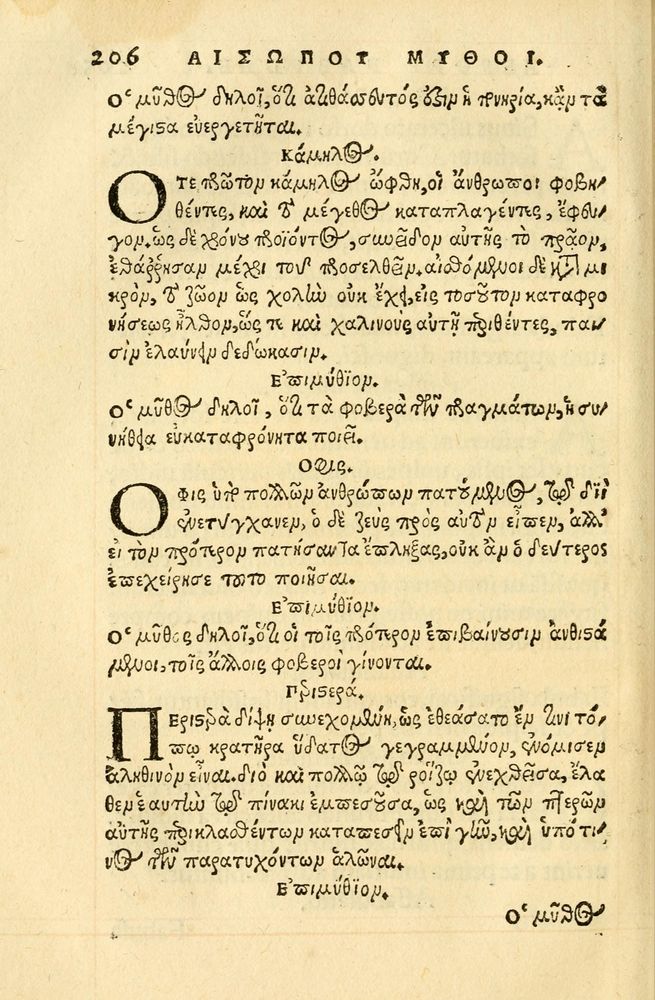 206 ΑΙΣΩΠΟΥ ΜΥΘΟΙ.
Ὁ μῦθος δηλοῖ, ὅτι ἀτιθάσσευτός ἐστιν ἡ πονηρία, κἂν τὰ
μέγιστα εὐεργετῆται.
Κάμηλος.
ΟΤΕ πρῶτον κάμηλος ὤφθη, οἱ ἄνθρωποι φοβη-
θέντες, καὶ τὸ μέγεθος καταπλαγέντες, ἔφευ-
γον. ὡς δὲ χρόνου προϊόντος, συνεῖδον αὐτῆς τὸ πρᾶον,
ἐθάρρησαν μέχρι τοῦ προσελθεῖν. αἰσθόμενοι δὲ κατὰ μι
κρὸν, τὸ ζῶον ὡς χολὴν οὐκ ἔχει, εἰς τοσοῦτον καταφρο
νήσεως ἦλθον, ὥς τε καὶ χαλινοὺς αὐτῇ περιθέντες, παι-
σὶν ἐλαύνειν δεδώκασιν.
Ἐπιμύθιον.
Ὁ μῦθος δηλοῖ, ὅτι τὰ φοβερὰ τῶν πραγμάτων, ἡ συ-
νήθεια εὐκαταφρόνητα ποιεῖ.
Ὄφις.
ΟΦΙΣ ὑπὸ πολλῶν ἀνθρώπων πατούμενος, τῷ διῒ
ἐνετύγχανεν, ὁ δὲ ζεὺς πρὸς αὐτὸν εἶπεν, ἀλλ'
εἰ τὸν πρότερον πατήσαντα ἔπληξας, οὐκ ἂν ὁ δεύτερος
ἐπεχείρησε τοῦτο ποιῆσαι.
Ἐπιμύθιον.
Ὁ μῦθος δηλοῖ, ὅτι οἱ τοῖς πρότερον ἐπιβαίνουσιν ἀνθιστά
μενοι, τοῖς ἄλλοις φοβεροὶ γίνονται.
Περιστερά.
ΠΕΡΙΣΤΕΡΑ δίψῃ συνεχομένη, ὡς ἐθεάσατο ἔν τινι τό-
πῳ κρατῆρα ὕδατος γεγραμμένον, ἐνόμισεν
ἀληθινὸν εἶναι. διὸ καὶ πολλῷ τῷ ῥοίζῳ ἐνεχθεῖσα, ἔλα
θεν ἑαυτὴν τῷ πίνακι ἐμπεσοῦσα, ὡς καὶ τῶν πτερῶν
αὐτῆς περικλασθέντων καταπεσεῖν ἐπὶ γῆν, καὶ ὑπό τι-
νος τῶν παρατυχόντων ἁλῶναι.
Ἐπιμύθιον.
Ὁ μῦθος